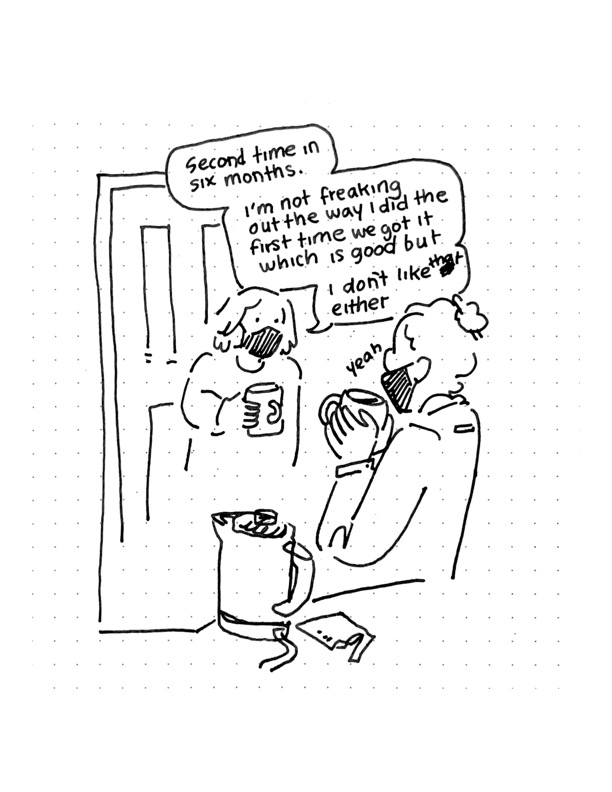 Second time in
six months.
I'm not freaking
out the way I did the
first time we got it
which is good but
I don't like that
either
yeah